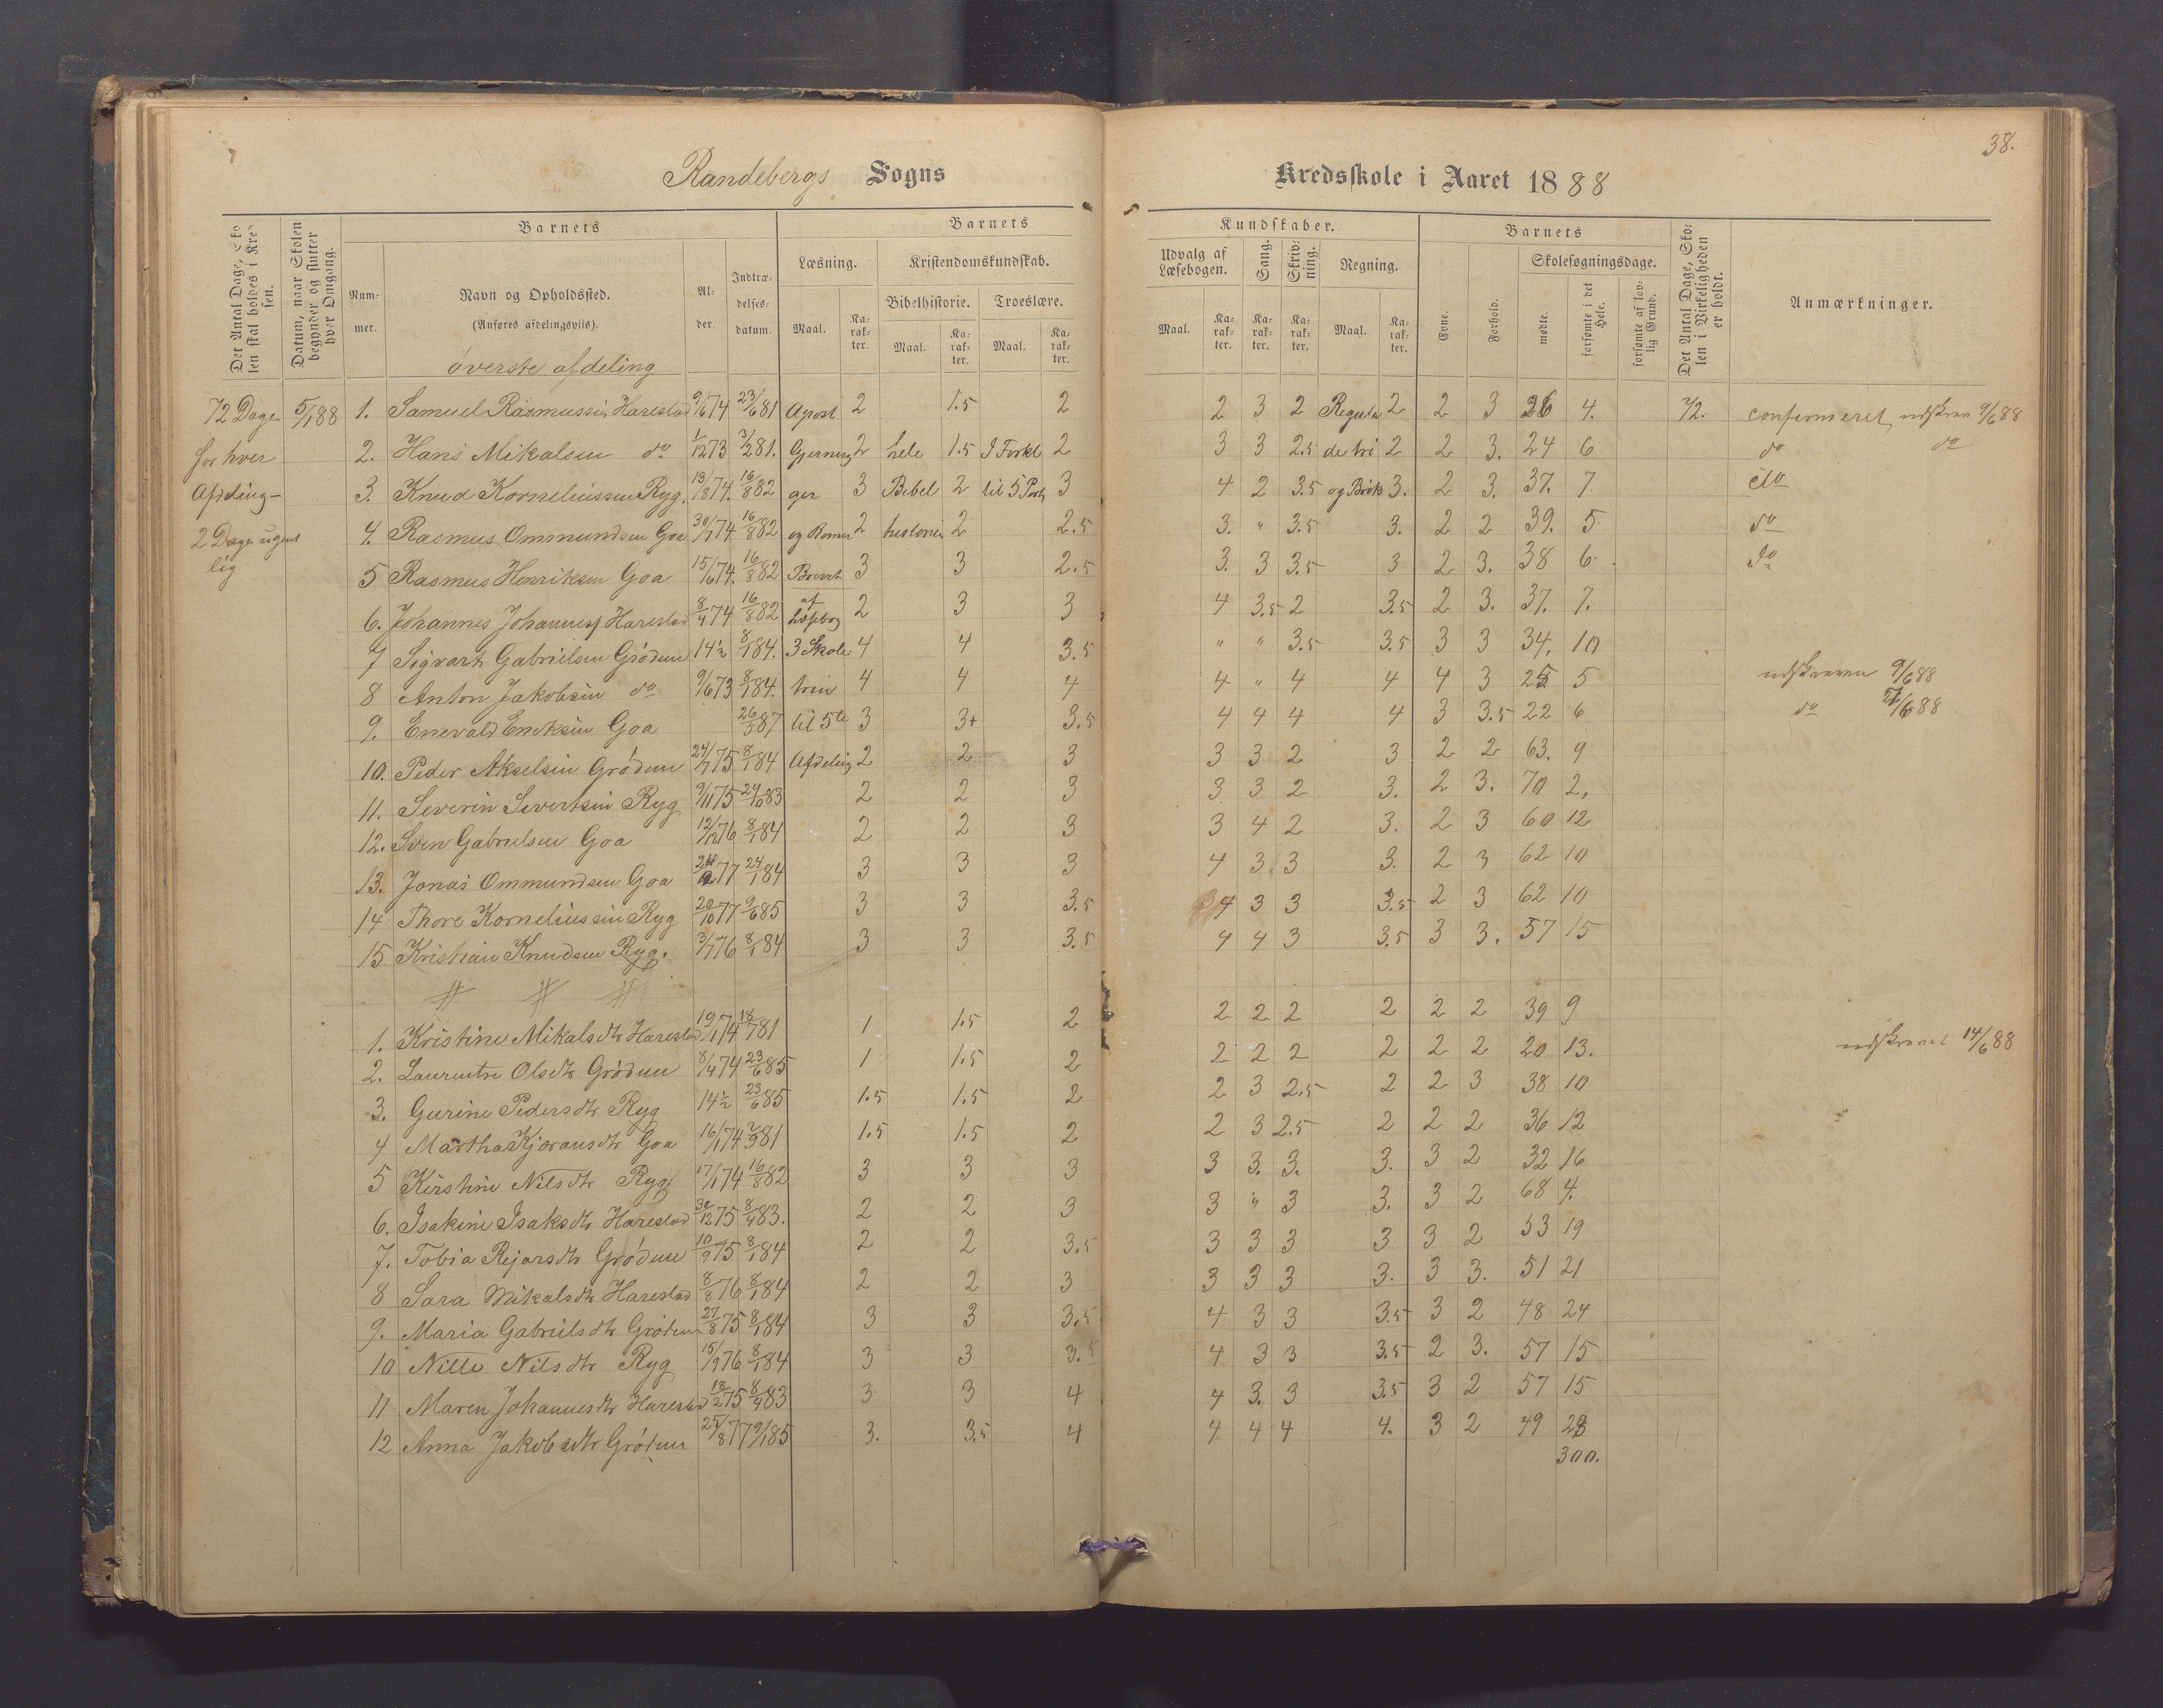 38.
Randebergs Sogns Kredsskole i Aaret 1888
Det Antal Dage, Skolen skal holdes i Kredsen.
Datum, naar Skolen begynder og slutter hver Omgang.
Barnets
Barnets
Kundskaber.
Barnets
Det Antal Dage, Skolen i Virkeligheden er holdt.
Anmærkninger.
Nummer.
Navn og Opholdssted.
(Anføres afdelingsvis).
Alder.
Indtrædelsesdatum.
Læsning.
Kristendomskundskab.
Bibelhistorie.
Troeslære.
Udvalg af Læsebogen.
Sang.
Skrivning.
Regning.
Evne.
Forhold.
Skolesøgningsdage.
mødte.
forsømte i det Hele.
forsømte af lovlig Grund.
Maal.
Karakter.
Maal.
Karakter.
Maal.
Karakter.
Maal.
Karakter.
Karakter.
Karakter.
Maal.
Karakter.
øverste afdeling
72 Dage 5/1 88 1. Samuel Rasmussen Harestad 9/6 74 23/6 81 Apost 2 1.5 2 2 3 2 Regula 2 2 3 26 4. 72. confirmeret, udskreven 9/6 88
for hver 2. Hans Mikalsen do 1/12 73 3/2 81. Gjerning 2 hele 1.5 I Forkl 2 3 3 2.5 de tri 2 2 3. 24 6 do do
Afdeling 3. Knud Korneliussen Ryg. 13/8 74. 16/8 82 ger 3 Bibel 2 til 5 Part 3 4 2 3.5 og Brøk 3. 2 3. 37. 7. do
2 Dage ugent 4. Rasmus Ommundsen Goa 30/7 74 16/8 82 og Romer 2 historie 2 2.5 3. " 3.5 3. 2 2 39. 5 do
lig 5 Rasmus Henriksen Goa 15/6 74. 16/8 82 Brevet 3 3 2.5 3. 3 3.5 3 2 3. 38 6 do
6. Johannes Johannes Harestad 8/4 74 16/8 82 af Læsebog 2 3 3 4 3.5 2 3.5 2 3. 37. 7.
7 Sigvart Gabrielsen Grødem 14½ 8/1 84. 3 Skole 4 4 3.5 " " 3.5 3.5 3 3 34. 10
8 Anton Jakobsen do 9/6 73 8/1 84. trin 4 4 4 4 " 4 4 4 3 25 5 udskreven 9/6 88
9. Enevald Eriksen Goa 26/5 87 til 5te 3 3+ 3.5 4 4 4 4 3 3.5 22 6 do /6 88
10. Peder Akselsen Grødem 24/7 75 8/1 84 Afdeling 2 2 3 3 3 2 3 2 2 63. 9
11. Severin Severtsen Ryg 9/11 75 29/10 83 2 2 3 3 3 2 3. 2 3. 70 2.
12. Sven Gabrielsen Goa 12/12 76 8/1 84 2 2 3 3 4 2 3. 2 3 60 12
13. Jonas Ommundsen Goa 77 24/1 84 3 3 3 4 3. 3 3. 2 3 62 10
14 Thore Korneliussen Ryg 29/10 77 9/6 85 3 3 3.5 4 3 3 3.5 2 3 62 10
15 Kristian Knudsen Ryg. 3/7 76 8/1 84 3 3 3.5 4 4 3 3.5 3 3. 57 15
1. Kristine Mikalsdtr Harestad 19/1 74 18/7 81 1 1.5 2 2 2 2 2 2 2 39 9
2. Laurentse Olsdtr Grødem 8/4 74 23/6 85 1 1.5 2 2 2 2 2 2 2 20 13. udskrevet 14/6 88
3. Gurine Pedersdtr Ryg 14½ 23/6 85 1.5 1.5 2 2 3 2.5 2 2 3 38 10
4 Martha Kjoransdtr Goa 16/1 74 2/9 81 1.5 1.5 2 2 3 2.5 2 2 2 36 12
5 Kirstine Nilsdtr Ryg 17/1 74 16/8 82 3 3 3 3 3. 3. 3. 3 2 32 16
6. Isakine Isaksdtr Harestad 30/12 75 8/4 83. 2 2 3 3 " 3 3. 3 2 68 4.
7. Tobia Rejarsdtr Grødem 10/9 75 8/1 84 2 2 3.5 3 3 3 3 3 2 53 19
8 Sara Mikalsdtr Harestad 8/8 76 8/1 84 2 2 3 3 3 3 3. 3 3. 51 21
9. Maria Gabrielsdtr Grødem 27/8 75 8/1 84 3 3 3.5 4 3 3 3.5 3 2 48 24
10 Nille Nilsdtr Ryg 15/9 76 8/1 84 3 3 3.5 4 3 3 3.5 2 3. 57 15
11 Maren Johannesdtr Harestad 18/2 75 8/4 83 3 3 4 4 3. 3 3.5 3 2 57 15
12 Anna Jakobsdtr Grødem 25/8 77 9/1 85 3. 3.5 4 4 4 4 4. 3 2 49 23
300.